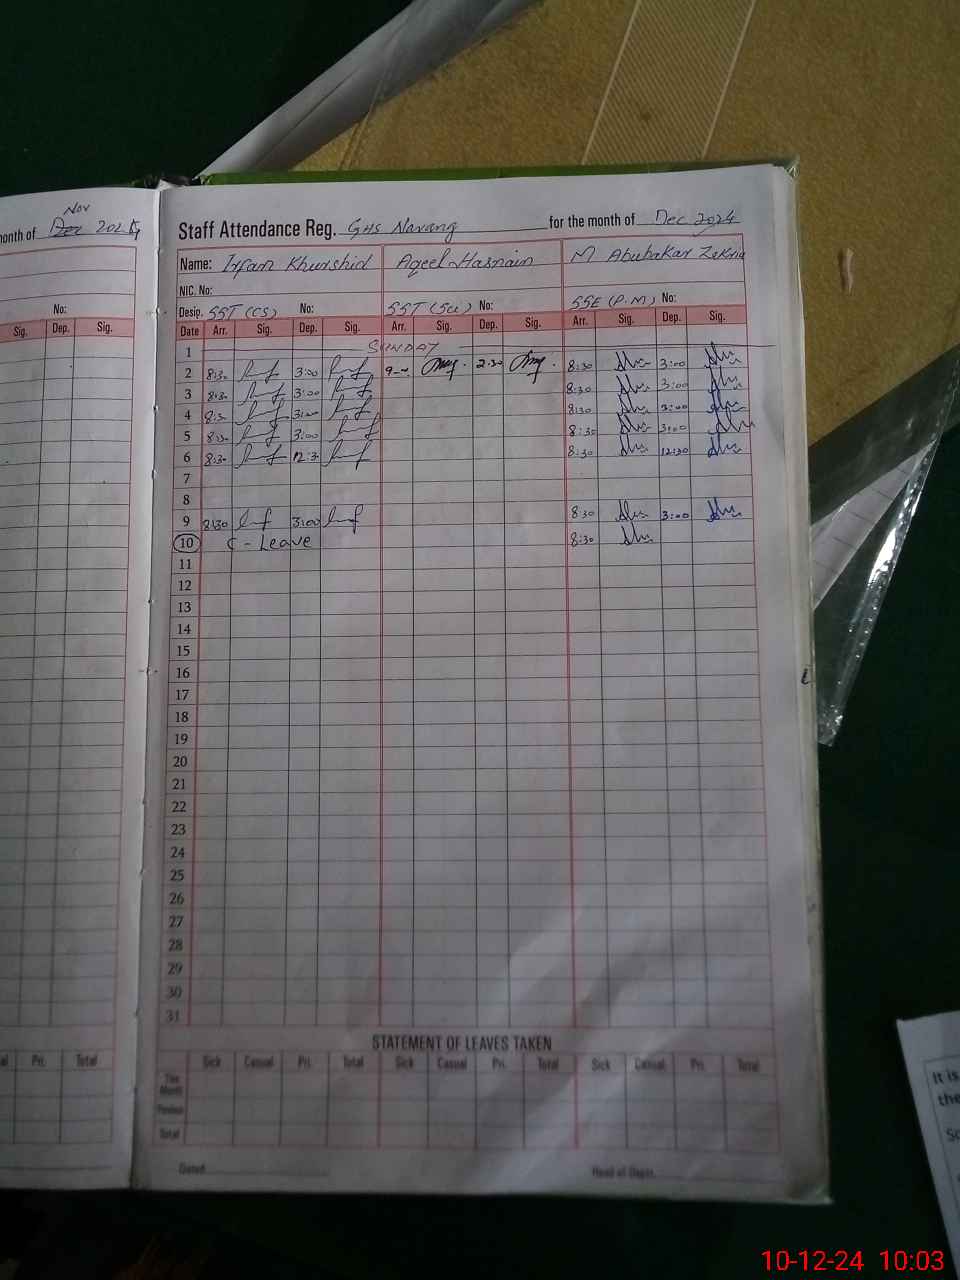 Nov
onth of Dec 2024
No:
Sig. Dep. Sig.
Pri. Total
Staff Attendance Reg. GHS Narang for the month of Dec 2024
Name: Irfan Khurshid Aqeel Hasnain M Abubakar Zekria
NIC. No:
Desig. SST (CS) No: SST (Sci) No: SSE (P.M) No:
Date Arr. Sig. Dep. Sig. Arr. Sig. Dep. Sig. Arr. Sig. Dep. Sig.
1 SUNDAY
2 8:30 3:00 9-- 2:30 8:30 3:00
3 8:30 3:00 8:30 3:00
4 8:30 3:00 8:30 3:00
5 8:30 3:00 8:30 3:00
6 8:30 12:30 8:30 12:30
7
8
9 8:30 3:00 8:30 3:00
10 C - Leave 8:30
11
12
13
14
15
16
17
18
19
20
21
22
23
24
25
26
27
28
29
30
31
STATEMENT OF LEAVES TAKEN
Sick Casual Pri. Total Sick Casual Pri. Total Sick Casual Pri. Total
This Month
Previous
Total
Dated Head of Deptt.
It is
the
10-12-24 10:03